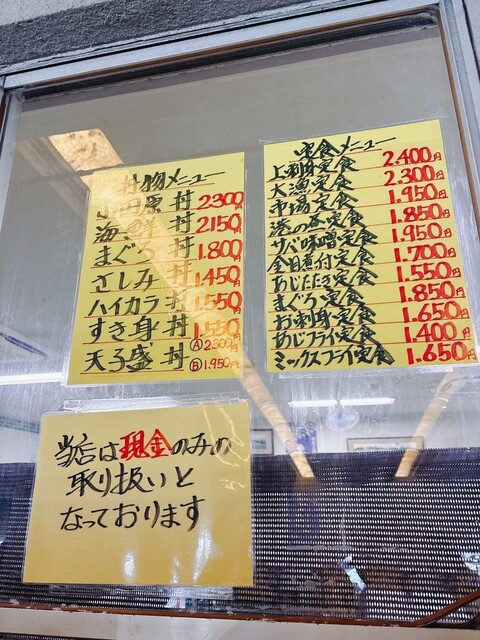 丼物メニュー
小田原丼 2.300円
海鮮丼 2.150円
まぐろ丼 1.800円
さしみ丼 1.450円
ハイカラ丼 1.550円
すき身丼 1.550
天こ盛丼 Ⓐ2.300円
Ⓑ1.950円
定食メニュー
上刺身定食 2.400円
大漁定食 2.300円
市場定食 1.950円
港の各定食 1.850円
サバ味噌定食 1.950円
金目煮付定食 1.700円
あじたたき定食 1.550円
まぐろ定食 1.850円
お刺身定食 1.650円
あじフライ定食 1.400円
ミックスフライ定食 1.650円
当店は現金のみの
取り扱いと
なっております